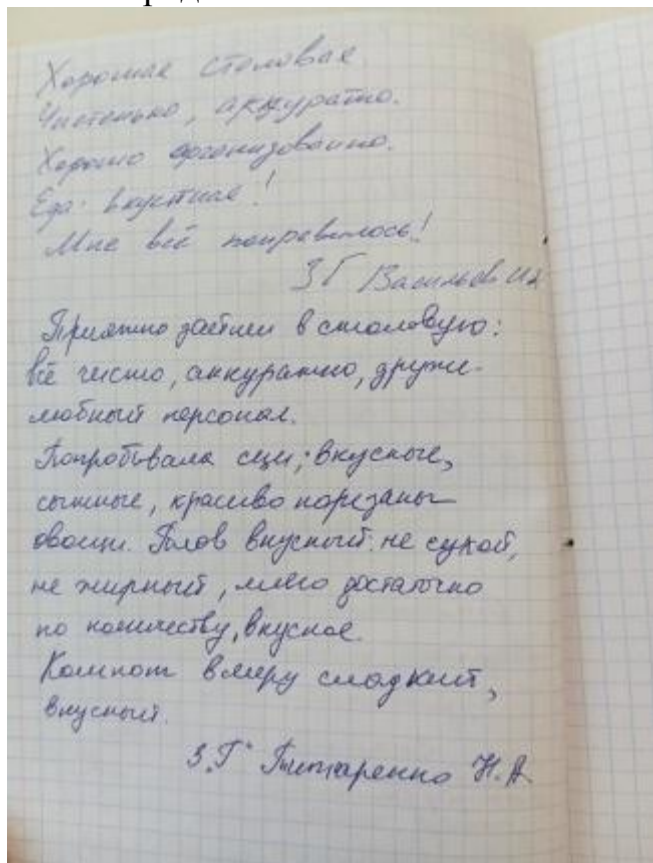 Хорошая столовая
Чистенько, аккуратно.
Хорошо организованно.
Еда: вкусная!
Мне всё понравилось!
3Г Васильев
Приятно зайти в столовую:
всё чисто, аккуратно, друже-
любный персонал.
Попробовала щи; вкусные,
сытные, красиво порезаны
овощи. Плов вкусный: не сухой,
не жирный, мясо достаточно
по количеству, вкусное.
Компот в меру сладкий,
вкусный.
3 "Г" Н.А.